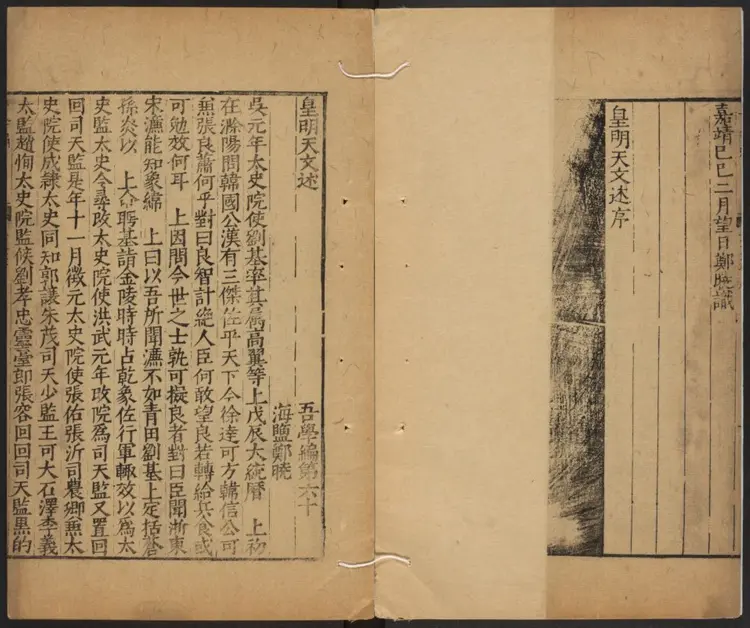 嘉靖巳巳二月望日鄭曉識
皇明天文述序
皇明天文述
吾學編第六十
海鹽鄭曉
吳元年太史院使劉基率其屬高翼等上戊辰大統曆　上初
在滁陽問韓國公漢有三傑佐平天下今徐達可方韓信公可
兼張良蕭何乎對曰良智計絶人臣何敢望良若轉給兵食或
可勉效何耳　上因問今世之士孰可擬良者對曰臣聞浙東
宋濂能知象緯　上曰以吾所聞濂不如青田劉基上定括蒼
孫炎以　上命聘基請金陵時時占乾象佐行軍輒效以爲太
史監太史令尋改太史院使洪武元年改院爲司天監又置回
回司天監是年十一月徵元太史院使張佑張沂司農卿兼太
史院使成隸太史同知郭讓朱茂司天少監王可大石澤李義
太監趙恂太史院監候劉孝忠靈臺郎張容回回司天監黑的